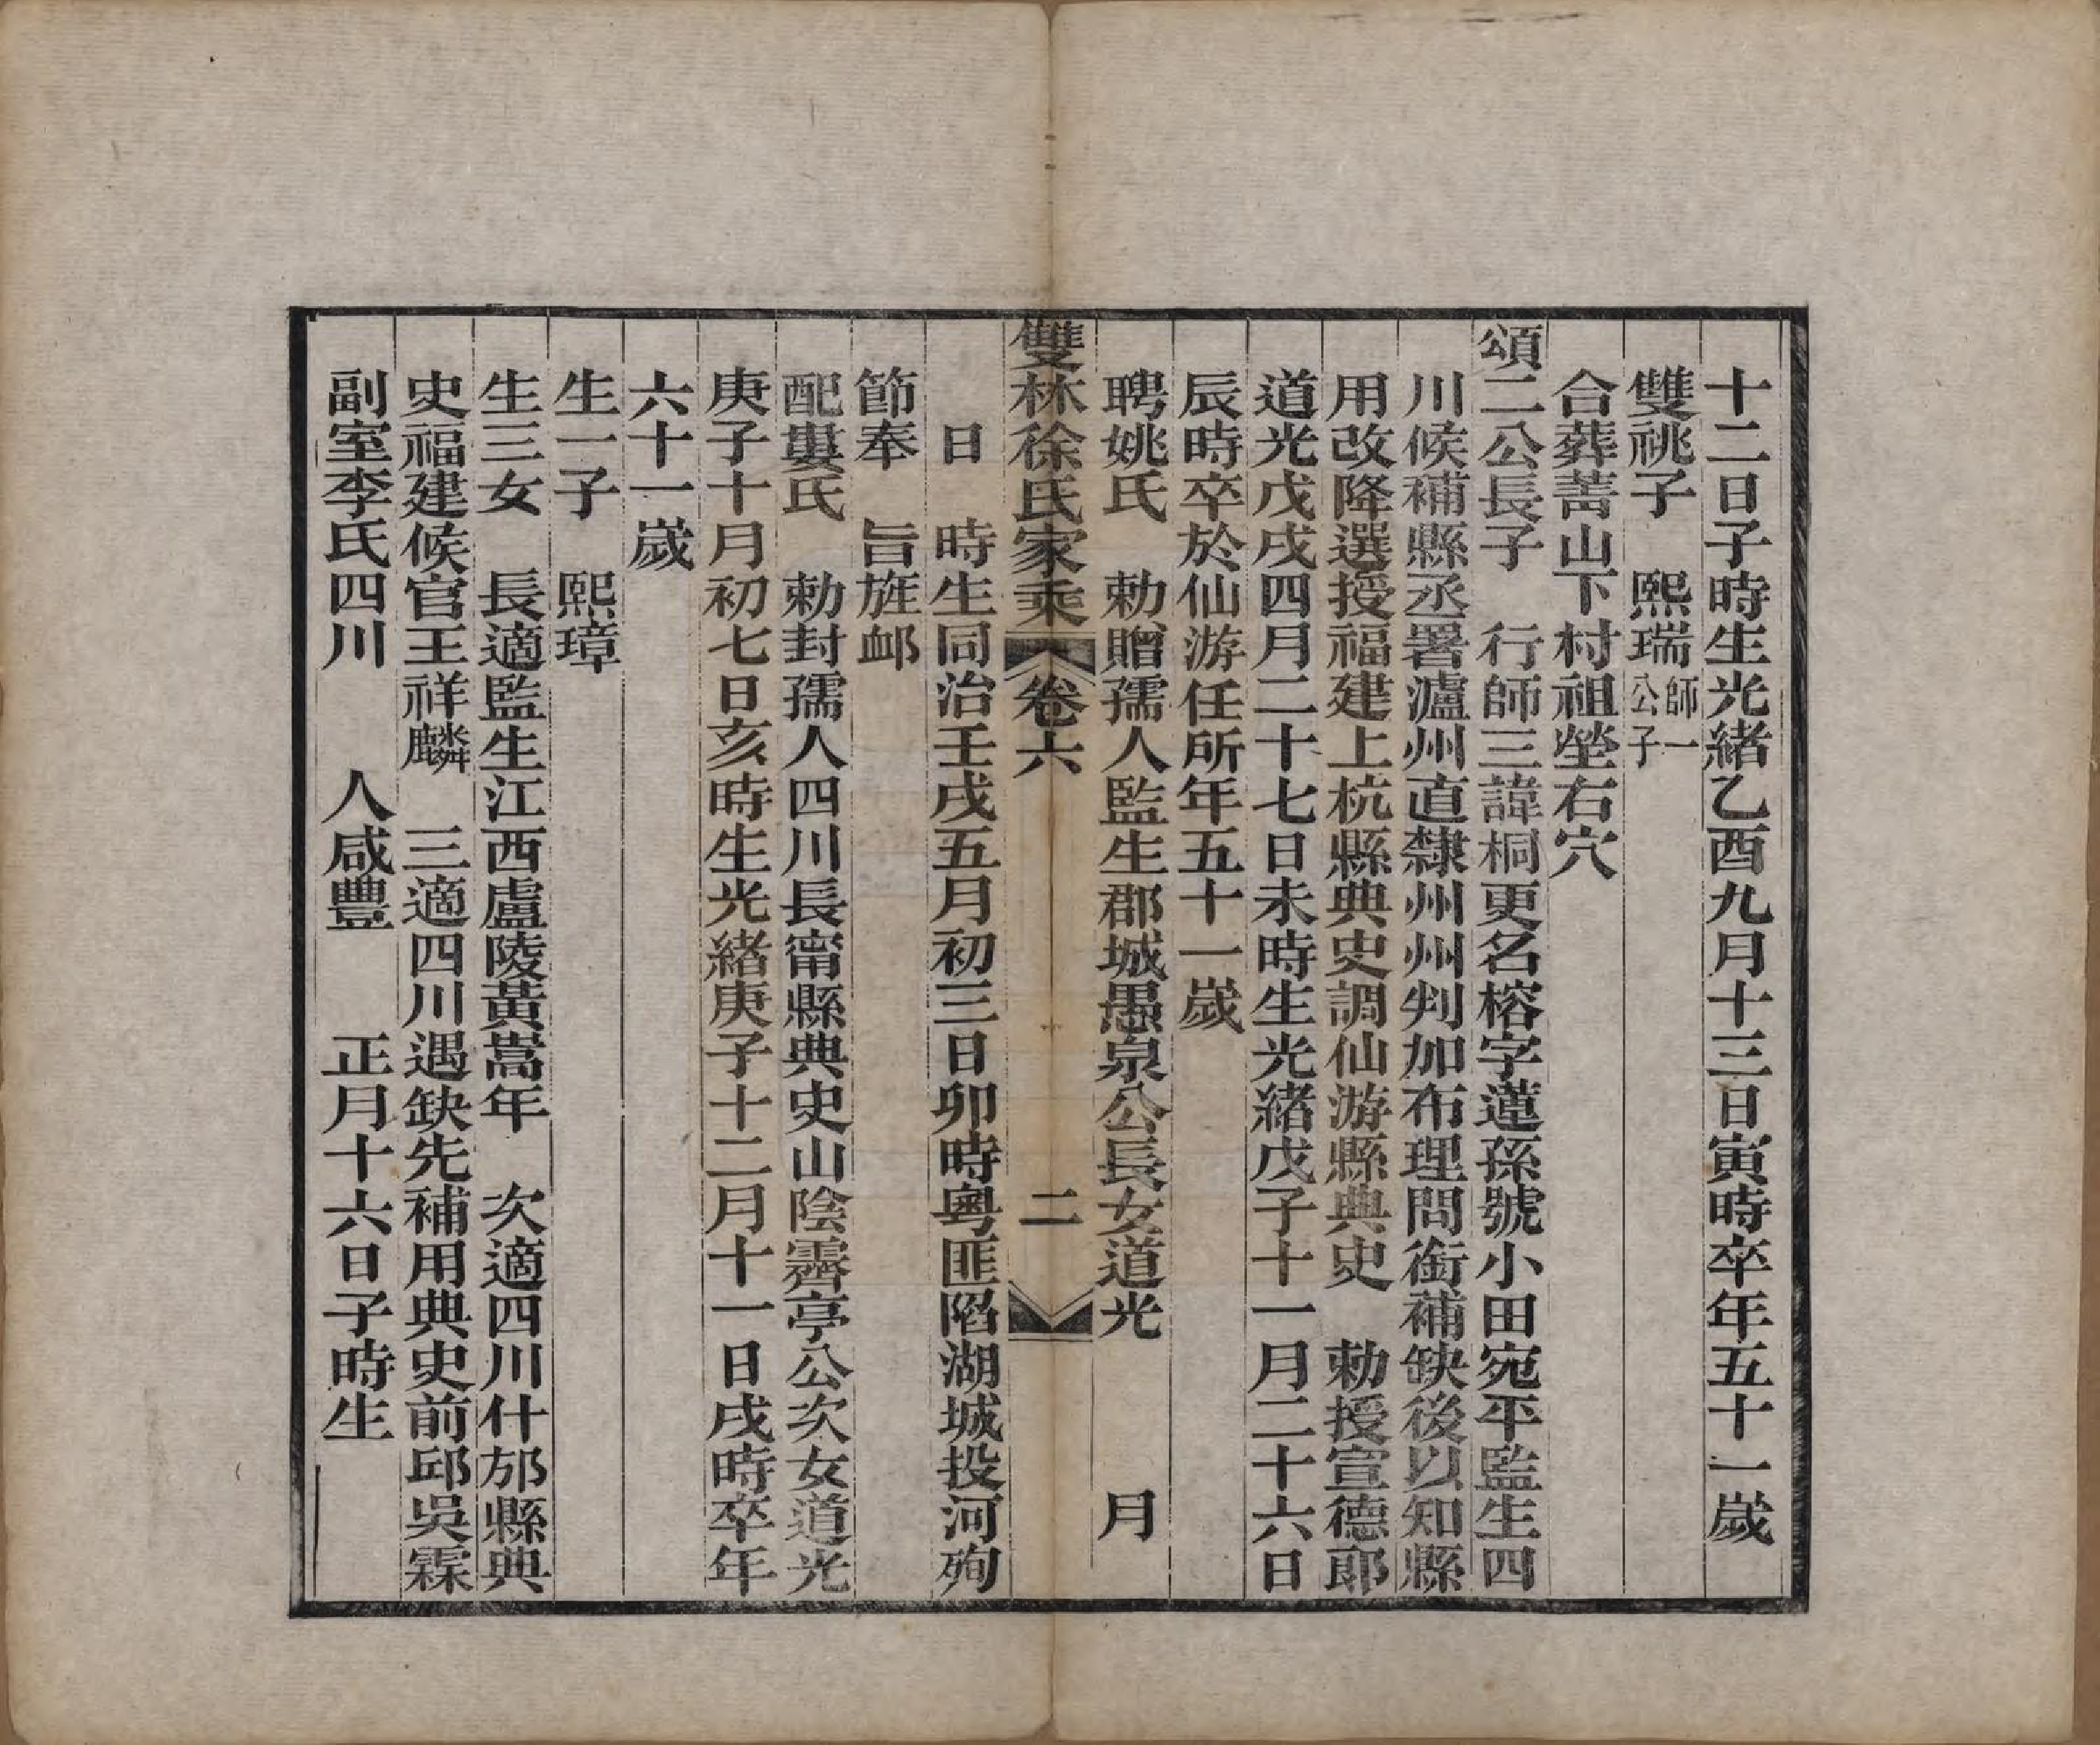 十二日子時生光緒乙酉九月十三日寅時卒年五十一歲
雙祧子　熙瑞師一公子
合葬菁山下村祖塋右穴
頌二公長子　行師三諱桐更名榕字蓮孫號小田宛平監生四
川候補縣丞署瀘州直隸州州判加布理問銜補缺後以知縣
用改降選授福建上杭縣典史調仙游縣典史　勅授宣德郎
道光戊戌四月二十七日未時生光緒戊子十一月二十六日
辰時卒於仙游任所年五十一歲
聘姚氏　勅贈孺人監生郡城愚泉公長女道光　　月
雙林徐氏家乘　卷六　二
日　時生同治壬戌五月初三日卯時粵匪陷湖城投河殉
節奉　旨旌卹
配婁氏　勅封孺人四川長甯縣典史山陰霽亭公次女道光
庚子十月初七日亥時生光緒庚子十二月十一日戌時卒年
六十一歲
生一子　熙璋
生三女　長適監生江西盧陵黃嵩年　次適四川什邡縣典
史福建候官王祥麟　三適四川遇缺先補用典史前邱吳霖
副室李氏四川　　人咸豐　　正月十六日子時生